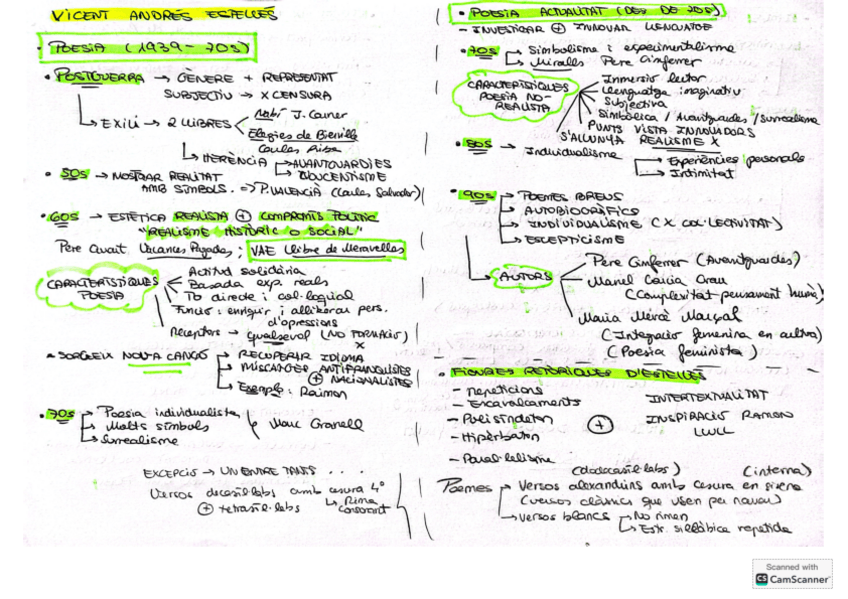 VICENT ANDRÉS ESTELLÉS
· POESIA (1939-70s)
· POSTGUERRA → GÈNERE + REPRESENTAT
SUBJECTIU → X CENSURA
EXILI → 2 LLIBRES
Nabí J. Carner
Elegies de Bierville
Carles Riba
HERÈNCIA → AVANTGUARDIES
→ NOUCENTISME
· 50s → MOSTRAR REALITAT
AMB SÍMBOLS. => P. VALENCIÀ (Carles Salvador)
· 60s → ESTÈTICA REALISTA + COMPROMÍS POLÍTIC
"REALISME HISTÒRIC O SOCIAL"
Pere Quart. Vacances Pagades; VAE Llibre de Meravelles
CARACTERÍSTIQUES POESIA
Actitud solidària
Basada exp. reals
To directe i col·loquial
Funció: enriquir i alliberar pers.
d'opressions
Receptors → qualsevol (NO FORMACIÓ)
X
SORGEIX NOVA CANÇÓ → RECUPERAR IDIOMA
→ MISSATGES ANTIFRANQUISTES
+ NACIONALISTES
→ Exemple: Raimon
· 70s → Poesia individualista
→ Molts símbols
→ Surrealisme
Marc Granell
EXCEPCIÓ → UN ENTRE TANTS ....
Versos decasíl·labs amb cesura 4ª
+ tetrasíl·labs
→ Rima consonant
· POESIA ACTUALITAT (DES DE 70s)
- INVESTIGAR + INNOVAR LLENGUATGE
· 70s → Simbolisme i experimentalisme
→ Miralls Pere Gimferrer
CARACTERÍSTIQUES POESIA NO-REALISTA
Immersió lector
Llenguatge imaginatiu
Subjectiva
Simbòlica / Avantguardes / Surrealisme
PUNTS VISTA INNOVADORS
S'ALLUNYA REALISME X
· 80s → Individualisme
→ Experiències personals
→ Intimitat
· 90s → POEMES BREUS
→ AUTOBIOGRÀFICS
→ INDIVIDUALISME (X COL·LECTIVITAT)
→ ESCEPTICISME
→ AUTORS
Pere Gimferrer (Avantguardes)
Manel Garcia Grau
(Complexitat pensament humà)
Maria Mercè Marçal
(Integració femenina en cultura)
(Poesia feminista)
· FIGURES RETÒRIQUES D'ESTELLÉS
- Repeticions
- Encavalcaments
- Polisíndeton
- Hipèrbaton
- Paral·lelisme
+
INTERTEXTUALITAT
INSPIRACIÓ RAMON
LLULL
(dodecasíl·labs) (interna)
Poemes → Versos alexandrins amb cesura en sisena
(versos clàssics que usen per narrar)
→ Versos blancs → No rimen
→ Estr. sil·làbica repetida
Scanned with
CS CamScanner